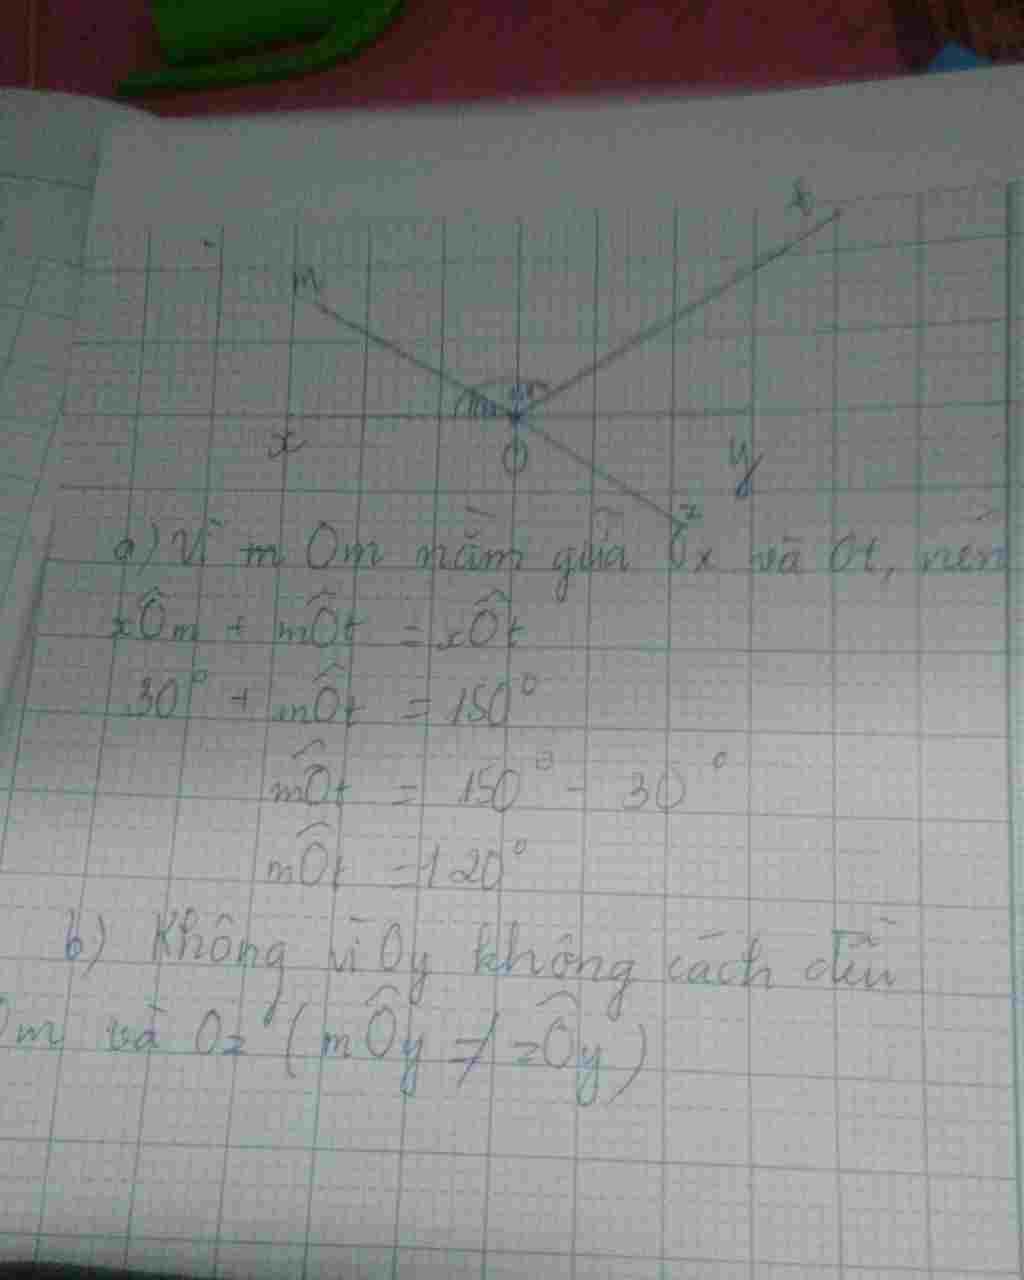 m
t
x
O
y
z
a) Vì m Om nằm giữa Ox và Ot, nên
xÔm + mÔt = xÔt
30° + mÔt = 150°
mÔt = 150° - 30°
mÔt = 120°
b) Không vì Oy không cách đều
Om và Oz (mÔy ≠ zÔy)